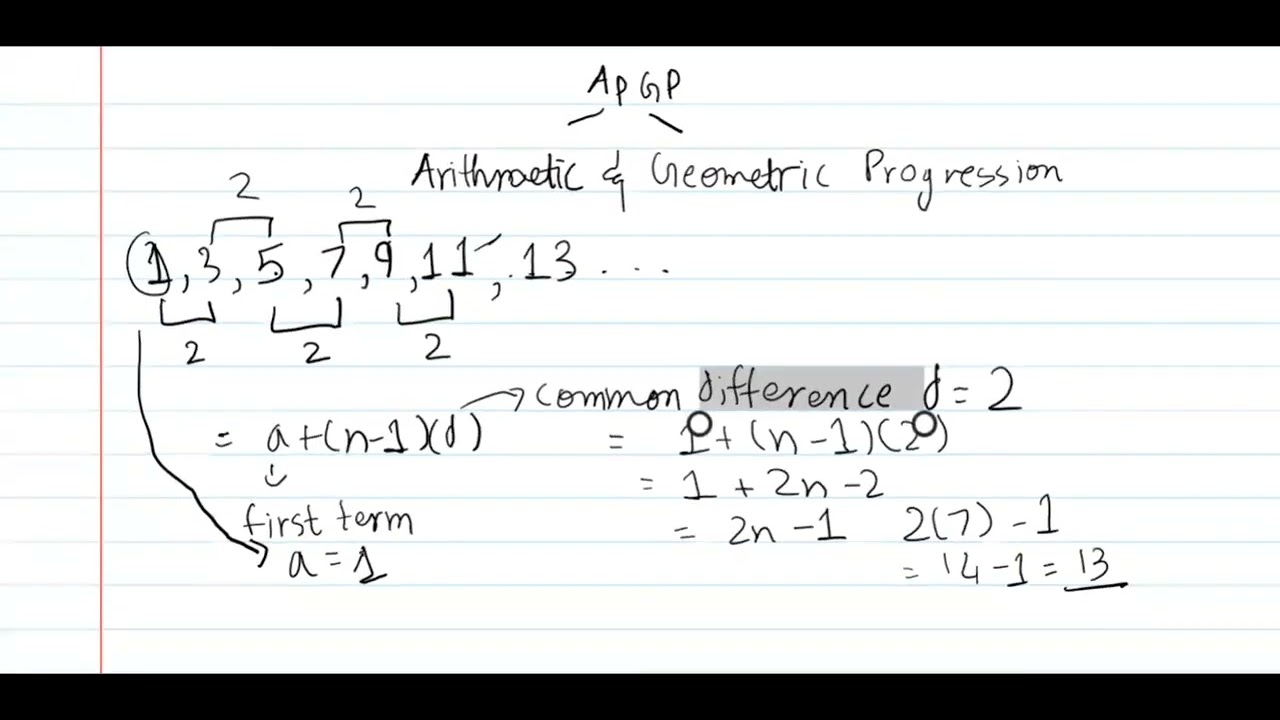 AP GP
Arithmetic & Geometric Progression
2 2
1, 3, 5, 7, 9, 11, 13 ...
2 2 2
common difference d = 2
= a+(n-1)(d) = 1 + (n-1)(2)
= 1 + 2n -2
first term = 2n -1 2(7) -1
a = 1 = 14 -1 = 13